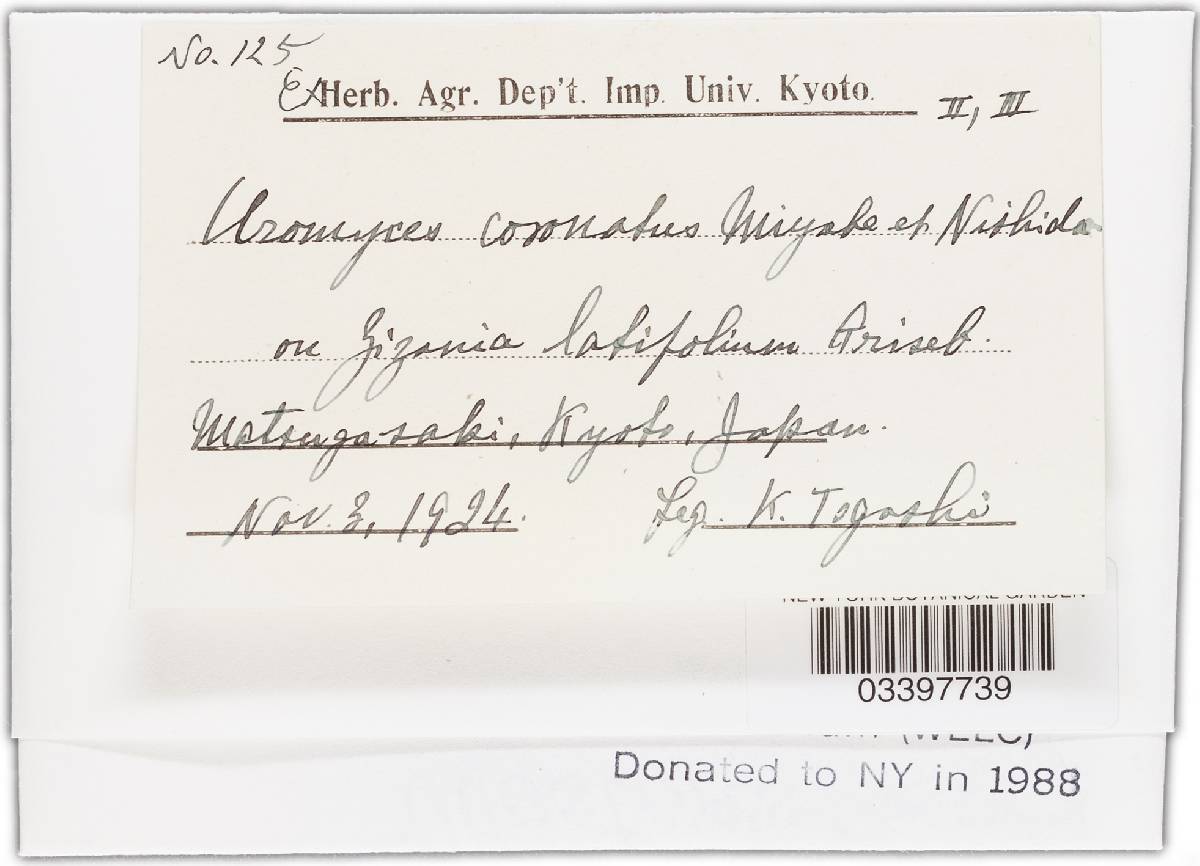 No. 125
Ex Herb. Agr. Dep't. Imp. Univ. Kyoto.
II, III
Uromyces coronatus Miyabe et Nishida
on Zizania latifolium Griseb.
Matsugasaki, Kyoto, Japan.
Nov. 3, 1924. Leg. K. Togashi
NEW YORK BOTANICAL GARDEN
03397739
(WELC)
Donated to NY in 1988